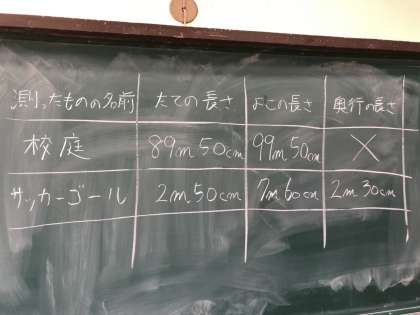 測ったものの名前 たての長さ よこの長さ 奥行の長さ
校庭 89m50cm 99m50cm ×
サッカーゴール 2m50cm 7m60cm 2m30cm